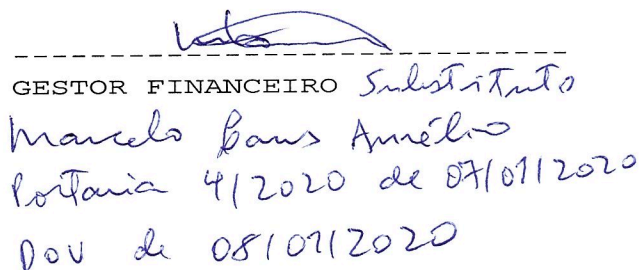 GESTOR FINANCEIRO Substituto
Marcelo Aurélio
Portaria 4/2020 de 07/01/2020
DOU de 08/01/2020